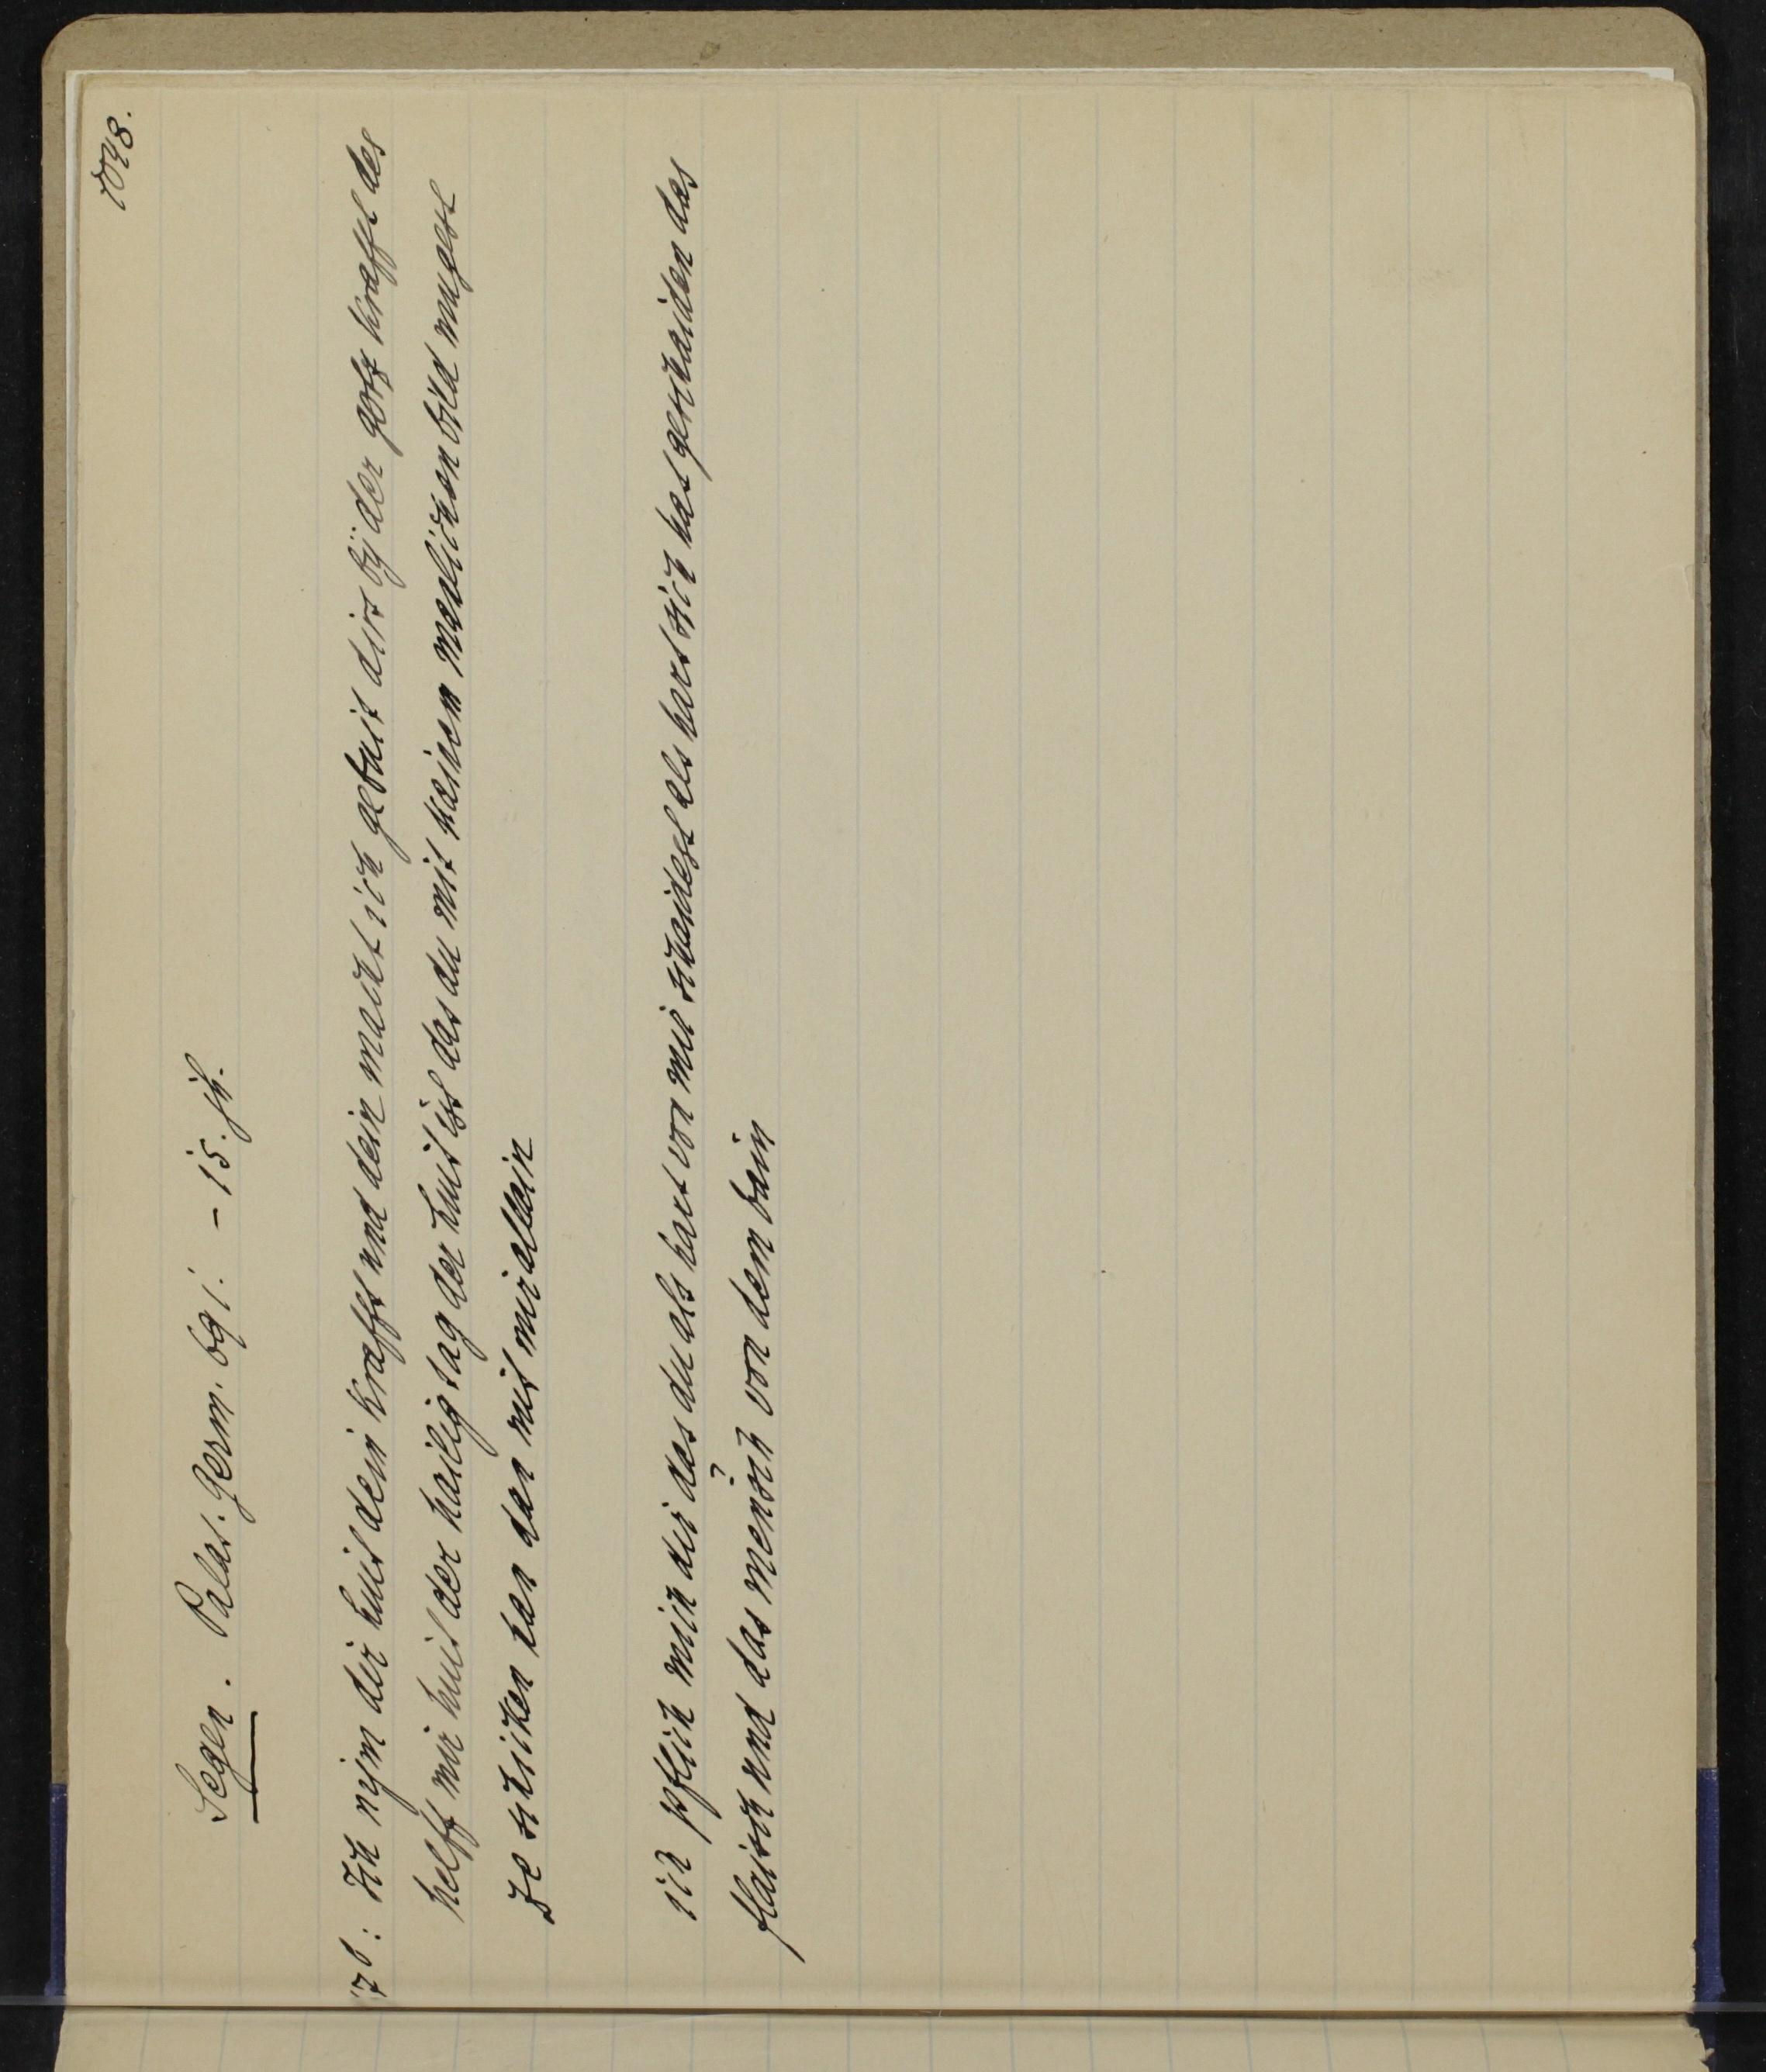 1048.
Segen. Palat. Germ. 691. - 15. Jh.
7b: Ich nym dir huit dein krafft und dein macht ich gebuit dirs by der gotz krafft des
helff mir huit der hailig tag der huit ist das du mit kainem manlichen bild mugest
ze schicken han dan mit mir allain
ich pflich mich dir das du als hart von mir schaidest als hart sich hat geschaiden das
flaisch und das mensch von dem bain
?